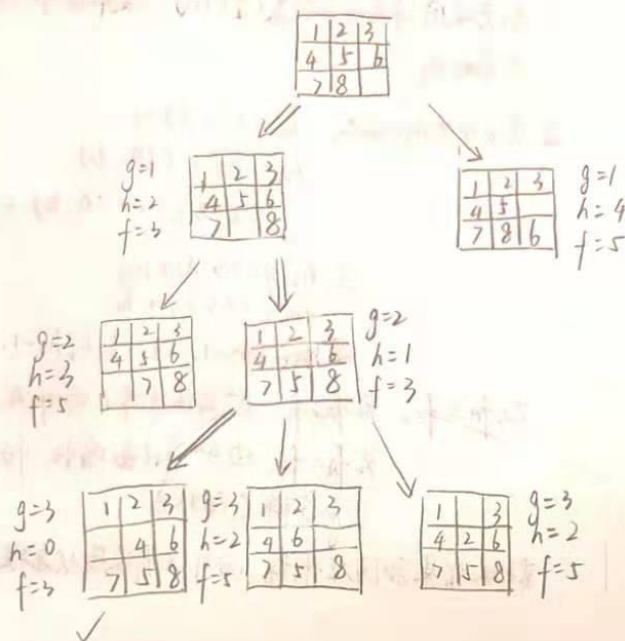 1 2 3
4 5 6
7 8
g=1
h=2
f=3
1 2 3
4 5 6
7 8
1 2 3
4 5
7 8 6
g=1
h=4
f=5
g=2
h=3
f=5
1 2 3
4 5 6
7 8
1 2 3
4 6
7 5 8
g=2
h=1
f=3
g=3
h=0
f=3
1 2 3
4 6
7 5 8
g=3
h=2
f=5
1 2 3
4 6
7 5 8
1 3
4 2 6
7 5 8
g=3
h=2
f=5